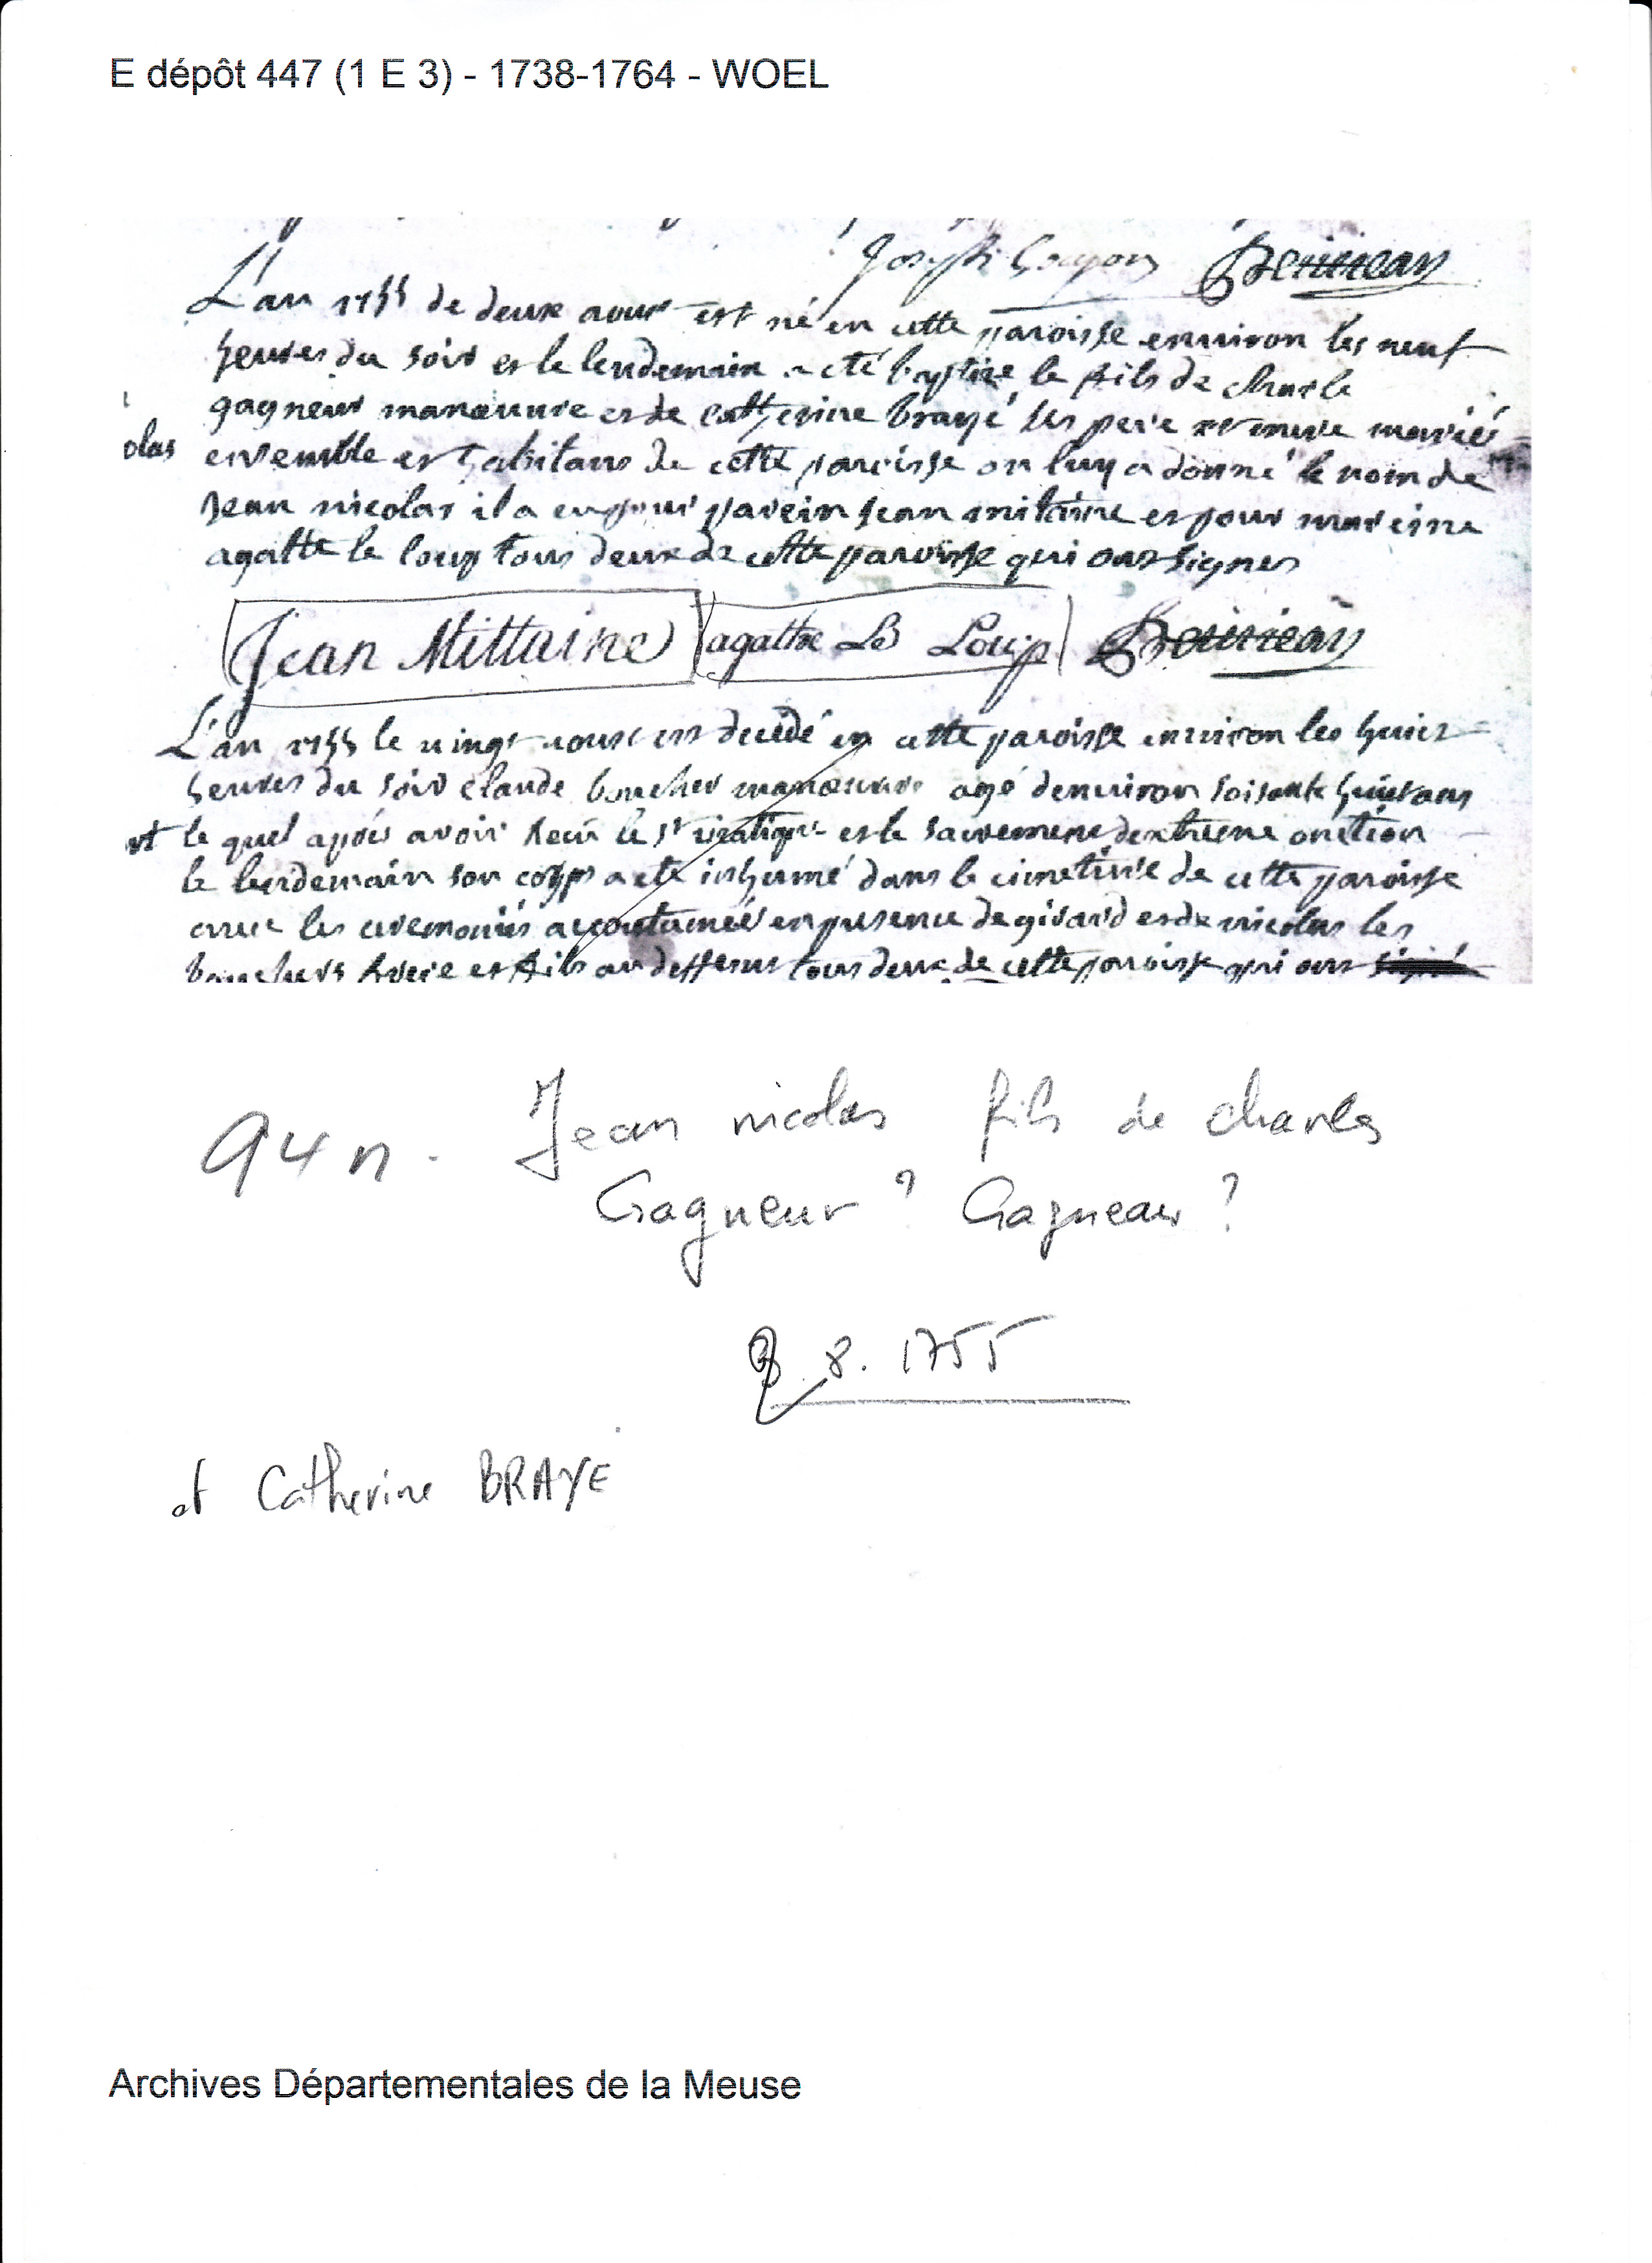 E dépôt 447 (1 E 3) - 1738-1764 - WOEL
Joseph
L'an 1755 de deux aout est né en cette paroisse environ les neuf
heures du soir et le lendemain a eté baptise le fils de charle
gagneur manœuvre et de catherine brayé ses pere et mere mariés
olas
ensemble et habitans de cette paroisse on luy a donné le nom de
Jean nicolas il a eu pour parein jean mitaine et pour mareine
agatte le loup tous deux de cette paroisse qui ont signes
Jean Mittaine agathe Le Loup
L'an 1755 le vingt aoust est decedé en cette paroisse environ les huict
heures du soir claude boucher manœuvre agé denviron soisante huict ans
et le quel aprés avoir recu le st viatique et le sacrement dextreme onction
le lendemain son corps a eté inhumé dans le cimetiere de cette paroisse
avec les ceremonies accoutumée en presence de girard et de nicolas les
bouchers frere et fils au dessus tous deux de cette paroisse qui ont signé
94 n. Jean nicolas fils de charles
Gagneur ? Gagneau ?
2 8. 1755
et Catherine BRAYE
Archives Départementales de la Meuse